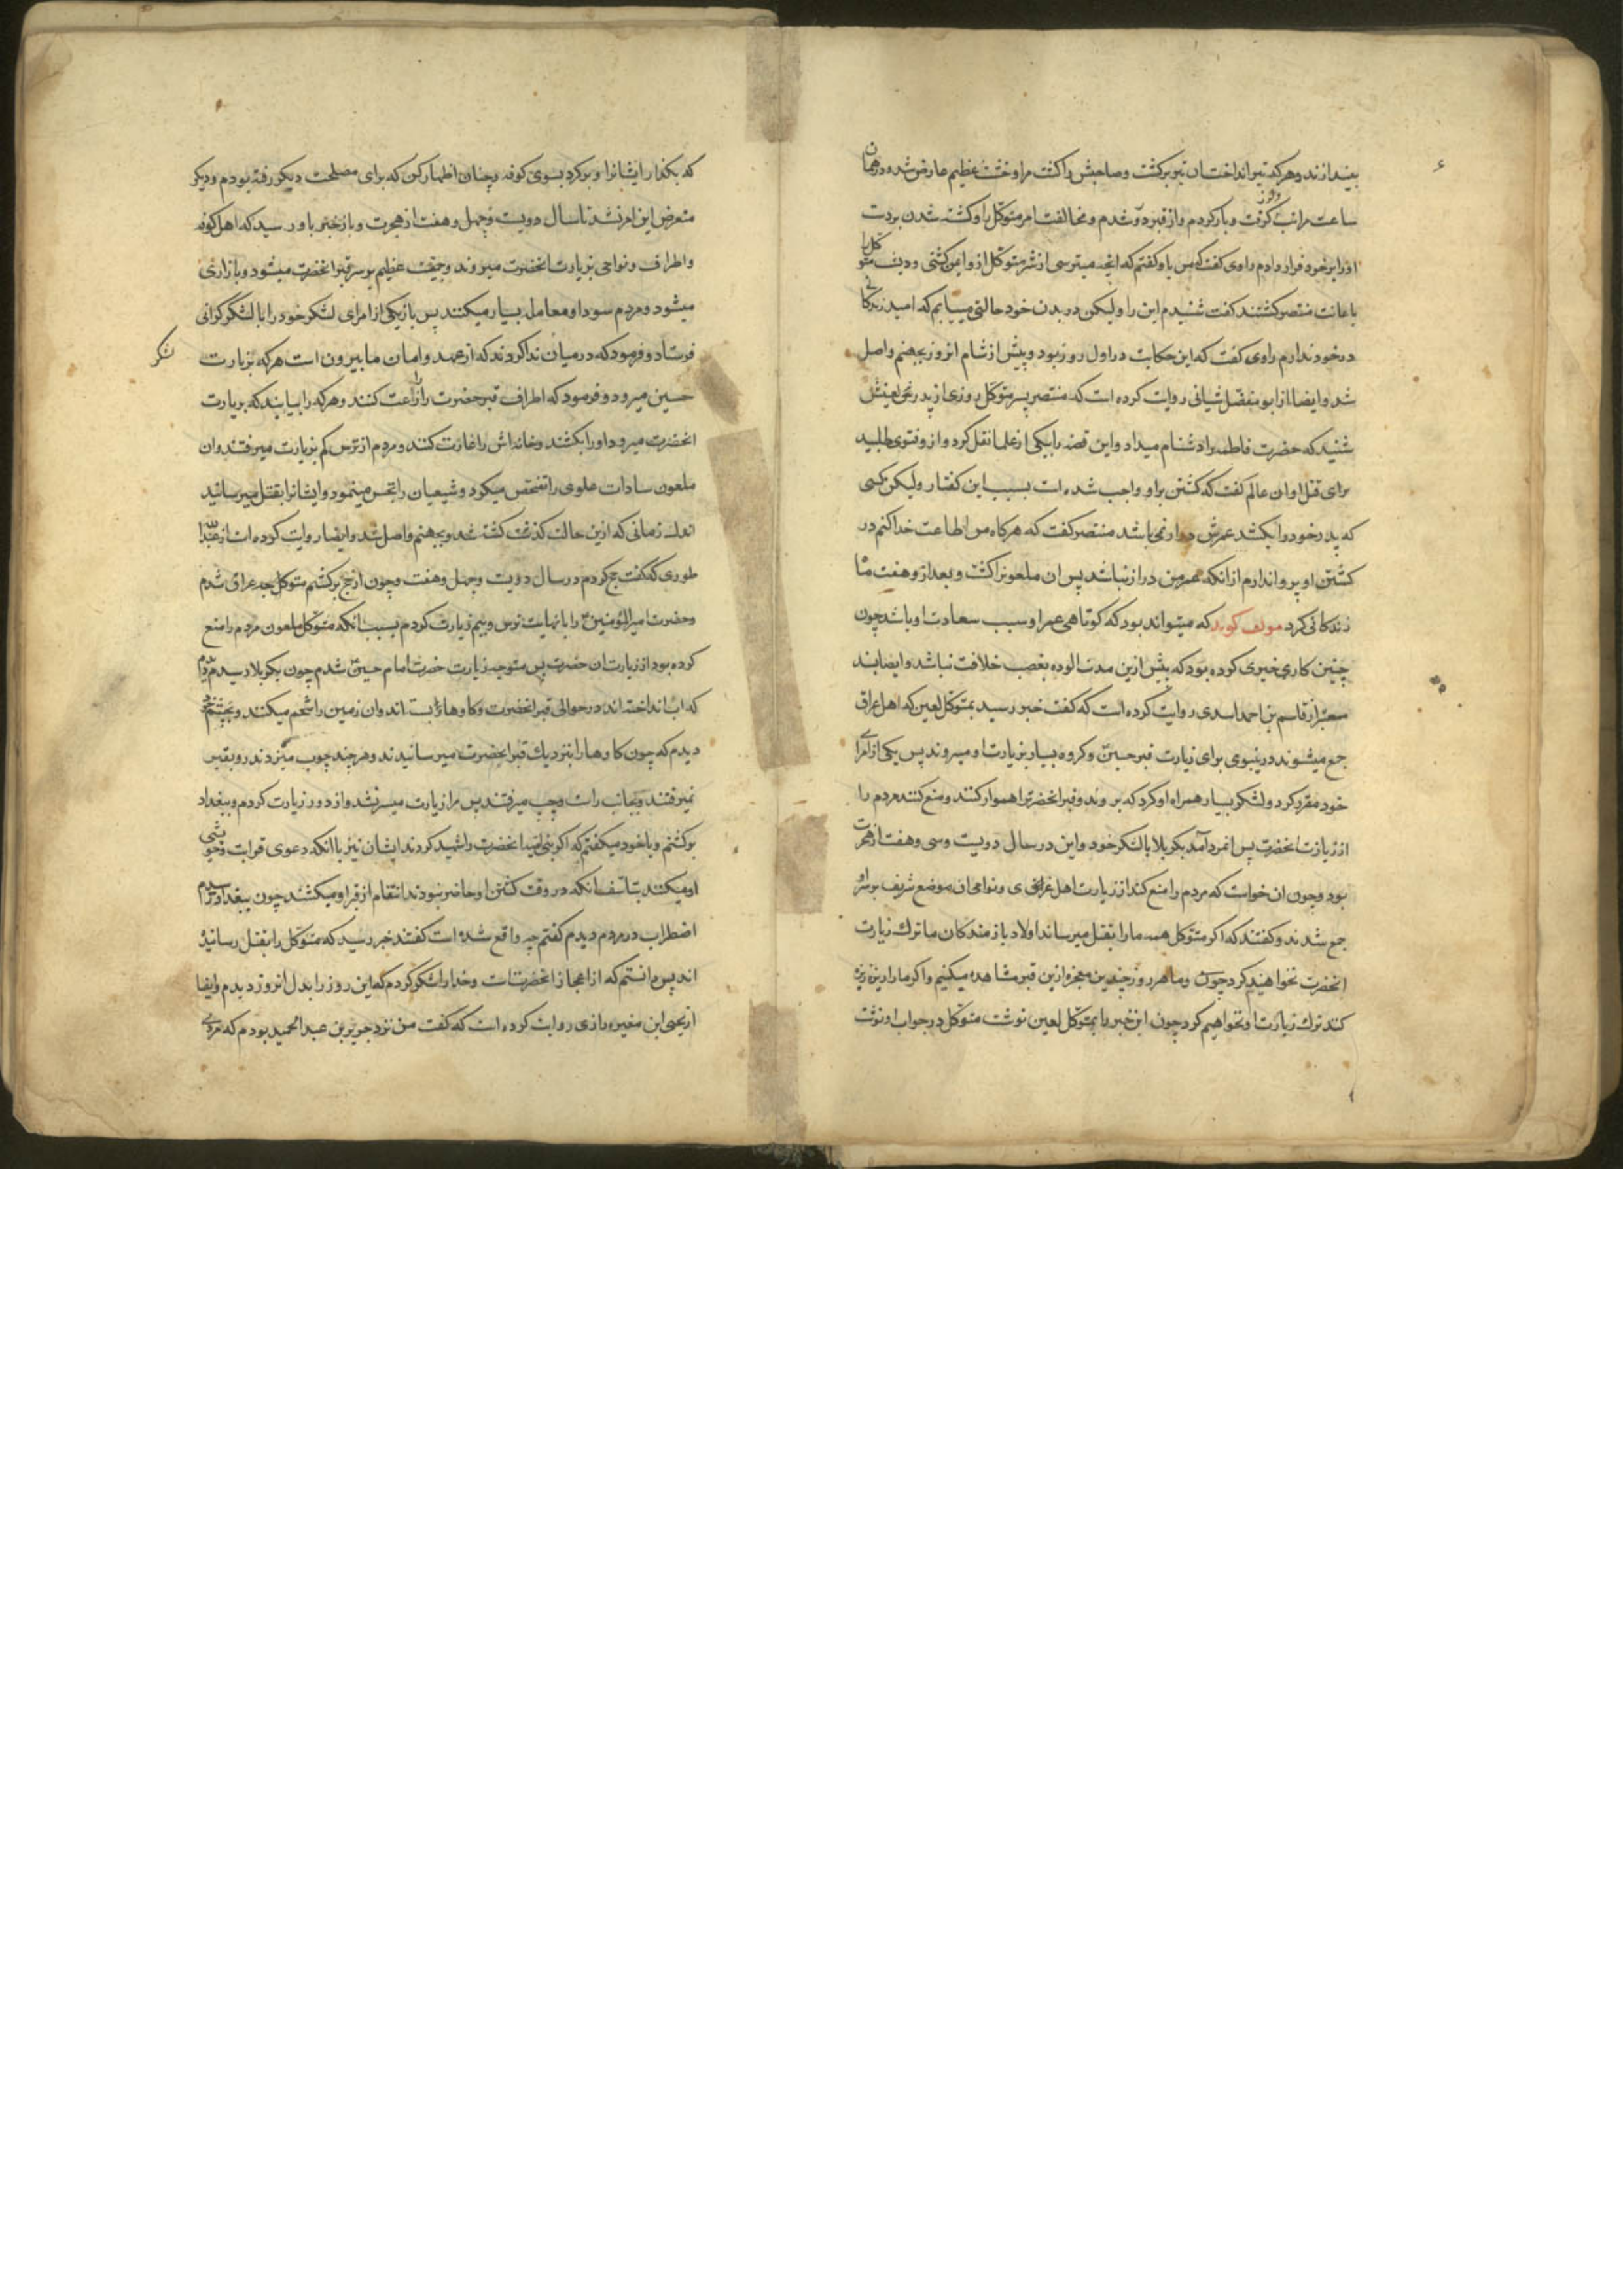 بیندازند و هرکه تیر انداخت ان تیر برکشت و صاحبش را کشت مرا وحشت عظیم عارض شد و در همان
ساعت مرا تب کرفت و بار کردم و از قبر دور شدم و مخالفت امر متوکل را و کشته شدن بردست
او را بر خود قرار دادم راوی کفت که من باو کفتم که انچه میترسی از شر متوکل از و ایمن کشتی و دیشب متوکل را
باعانت منتصر کشتند کفت شنیدم این را ولیکن در بدن خود حالتی مییابم که امید زندکانی
در خود ندارم راوی کفت که این حکایت در اول روز بود و پیش از شام انروز بجهنم واصل
شد و ایضا از ابو مفضل شیبانی روایت کرده است که منتصر پسر متوکل روزی از پدر نحس لعینش
شنید که حضرت فاطمه را دشنام میداد و این قصه را بیکی از علما نقل کرد و از و فتوی طلبید
برای قتل او ان عالم کفت که کشتن براو واجب شده است بسبب این کفتار ولیکن کسی
که پدر خود را بکشد عمرش دراز نمی باشد منتصر کفت که هرکاه من اطاعت خدا کنم در
کشتن او پروا ندارم از انکه عمر من دراز نباشد پس ان ملعونرا کشت و بعد از و هفت ماه
زندکانی کرد مولف کوید که میتواند بود که کوتاهی عمر او سبب سعادت او باشد چون
چنین کار خیری کرده بود که بیش ازین مدت الوده بغصب خلافت نباشد و ایضا بسند
معتبر از قاسم بن احمد اسدی روایت کرده است که کفت خبر رسید بمتوکل لعین که اهل عراق
جمع میشوند در نینوی برای زیارت قبر حسین و کروه بسیار بزیارت او میروند پس یکی از امرای
خود مقرر کرد و لشکر بسیار همراه او کرد که بروند و قبر انحضرترا هموار کنند و منع کنند مردم را
از زیارت انحضرت پس انمرد آمد بکربلا با لشکر خود و این در سال دویست و سی و هفت از هجرت
بود و چون ان خواست که مردم را منع کند از زیارت اهل و نواحی ان موضع شریف بر سر او
جمع شدند و کفتند که اکر متوکل همه ما را بقتل میرساند اولاد بازمندکان ما ترک زیارت
انحضرت نخواهند کرد چون و ما هر روز چندین معجزه ازین قبر مشاهده میکنیم و اکر ما را ریزه ریزه
کند ترک زیارت او نخواهیم کرد چون این خبر را بمتوکل لعین نوشت متوکل در جواب او نوشت
که بکذار ایشانرا و برکرد بسوی کوفه و چنان اظهار کن که برای مصلحت دیکر رفته بودم و دیکر
متعرض این امر نشد تا سال دویست و چهل و هفت از هجرت و باز خبر باو رسید که اهل کوفه
و اطراف و نواحی بزیارت انحضرت میروند و جمعیت عظیم بر سر قبر انحضرت میشود و بازاری
میشود و مردم سودا و معامله بسیار میکنند پس باز یکی از امرای لشکر خود را با لشکر کرانی
فرستاد و فرمود که در میان ندا کردند که از عهد و امان ما بیرون است هرکه بزیارت
حسین میرود و فرمود که اطراف قبر حضرت را زراعت کنند و هرکه را بیابند که بزیارت
انحضرت میرود او را بکشند و خانه اش را غارت کنند و مردم از ترس کم بزیارت میرفتند و ان
ملعون سادات علوی را تفحص میکرد و شیعیان را تجسس مینمود و ایشانرا بقتل میرسانید
اندک زمانی که ازین حالت کذشت کشته شد و بجهنم واصل شد و ایضا روایت کرده است از عبدالله
طوری که کفت حج کردم در سال دویست و چهل و هفت و چون از حج برکشتم متوجه عراق شدم
و حضرت امیرالمؤمنین را با نهایت ترس و بیم زیارت کردم بسبب انکه متوکل ملعون مردم را منع
کرده بود از زیارت ان حضرت پس متوجه زیارت حضرت امام حسین شدم چون بکربلا رسیدم دیدم
که اب انداخته اند در حوالی قبر انحضرت و کاوها بسته اند و ان زمین را شخم میکنند و بچشم خود
دیدم که چون کاوها را بنزدیک قبر انحضرت میرسانیدند و هر چند چوب میزدند رو بقبر
نمیرفتند و بجانب راست و چپ میرفتند پس مرا زیارت میسر نشد و از دور زیارت کردم و ببغداد
برکشتم و با خود میکفتم که اکر بنی امیه انحضرت را شهید کردند ایشان نیز با انکه دعوی قرابت و خویشی
او میکنند بتاسف انکه در وقت کشتن او حاضر نبودند انتقام از قبر او میکشند چون ببغداد رسیدم
اضطراب در مردم دیدم کفتم چه واقع شده است کفتند خبر رسید که متوکل را بقتل رسانیده
اند پس دانستم که از اعجاز انحضرتست و خدا را شکر کردم که این روز را بدل انروز دیدم و ایضا
از یحیی ابن مغیره رازی روایت کرده است که کفت من نزد جریر بن عبدالحمید بودم که مردی